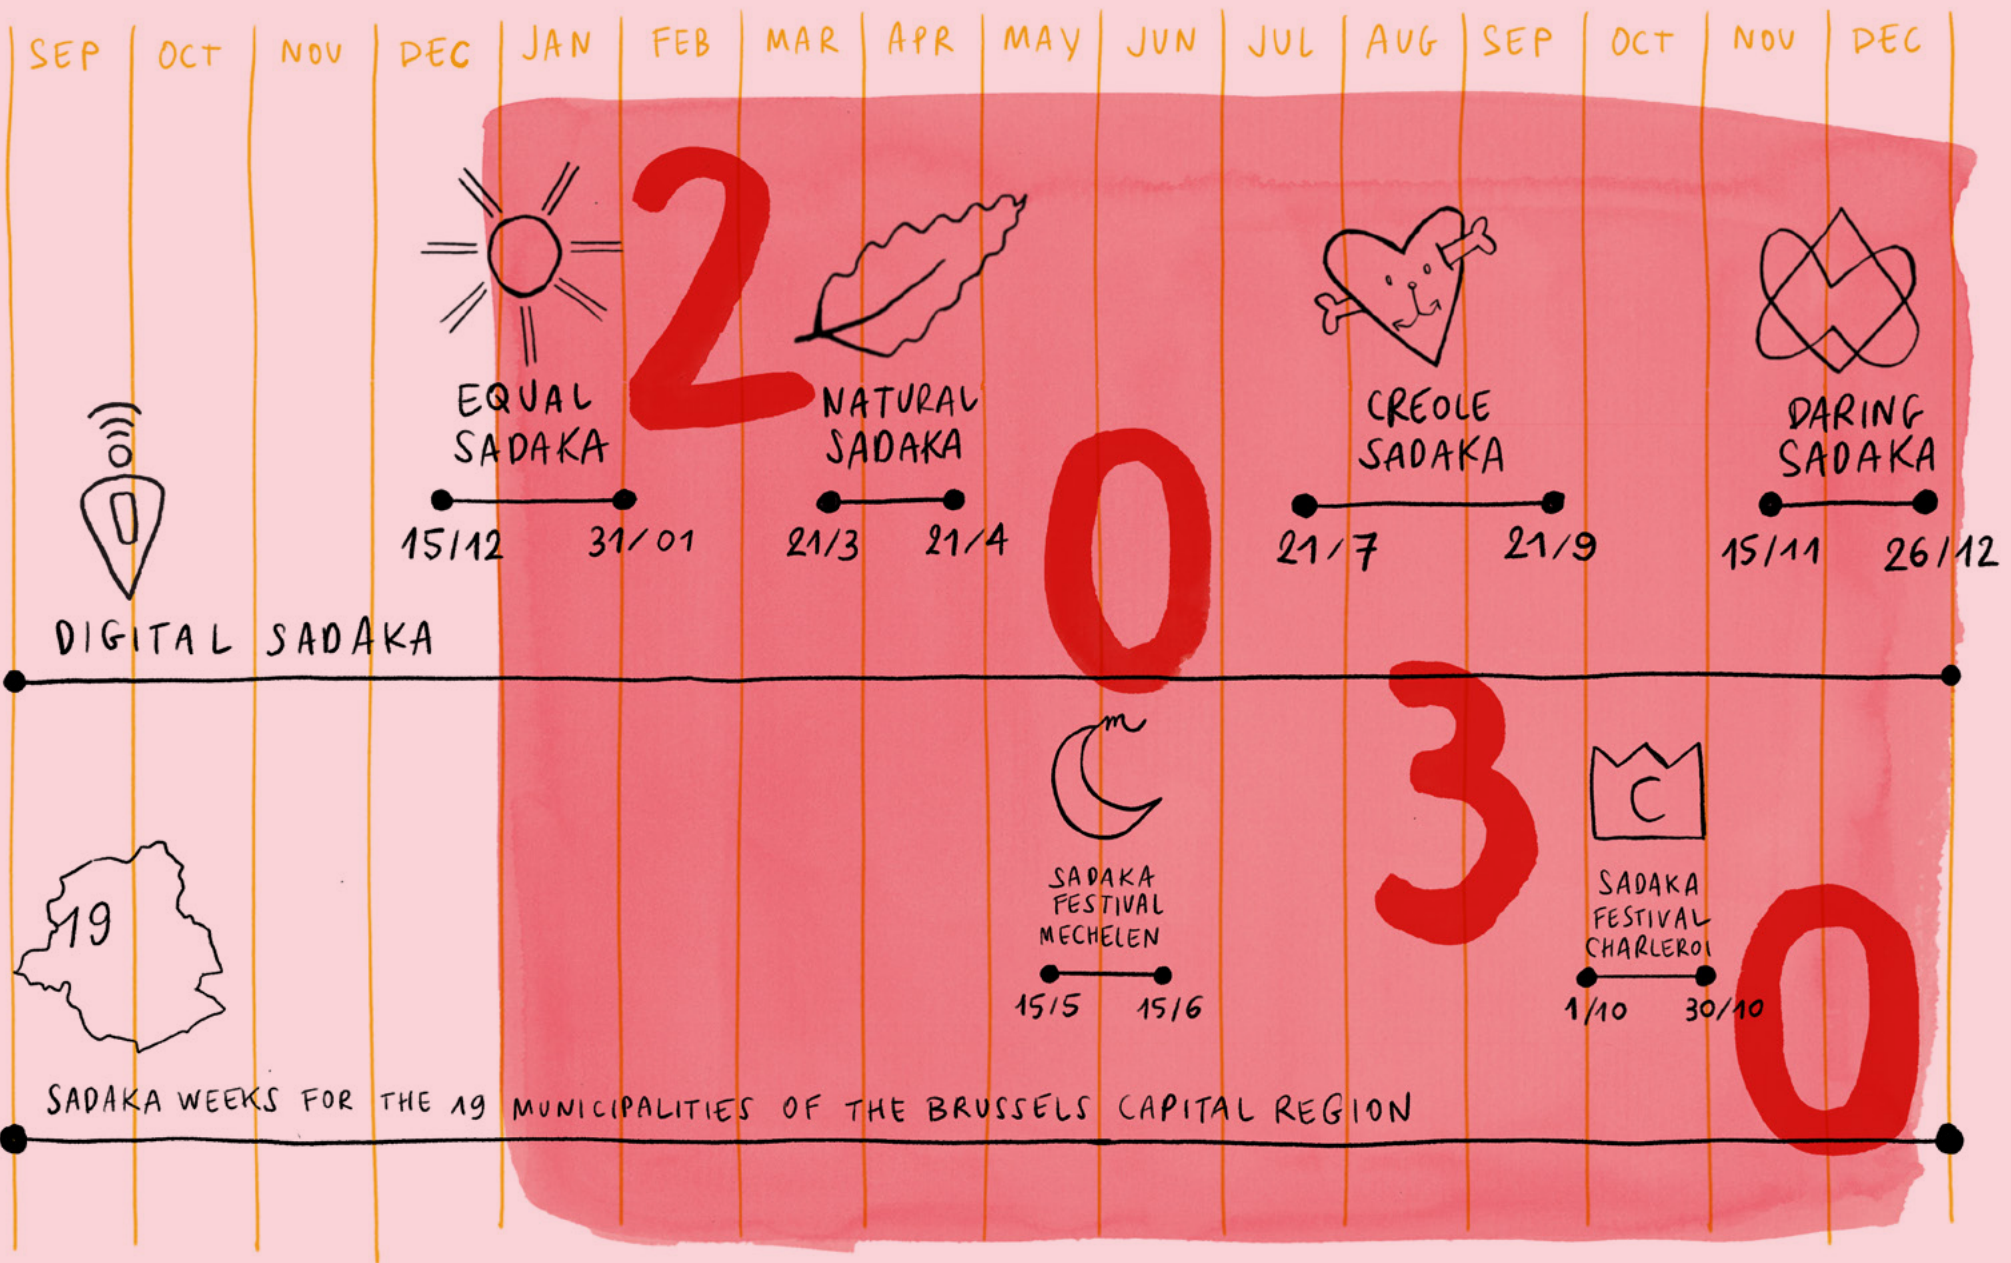 SEP OCT NOV DEC JAN FEB MAR APR MAY JUN JUL AUG SEP OCT NOV DEC
2
0
3
0
EQUAL
SADAKA
15/12 31/01
NATURAL
SADAKA
21/3 21/4
CREOLE
SADAKA
21/7 21/9
DARING
SADAKA
15/11 26/12
DIGITAL SADAKA
m
SADAKA
FESTIVAL
MECHELEN
15/5 15/6
C
SADAKA
FESTIVAL
CHARLEROI
1/10 30/10
19
SADAKA WEEKS FOR THE 19 MUNICIPALITIES OF THE BRUSSELS CAPITAL REGION